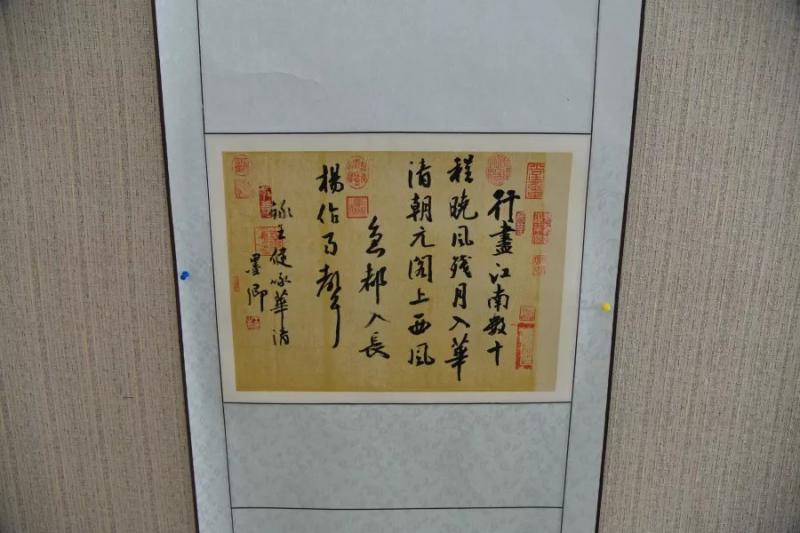 行盡江南數十
程曉風殘月入華
清朝元閣上西風
急都入長
楊作雨聲
錄王健詠華清
墨卿